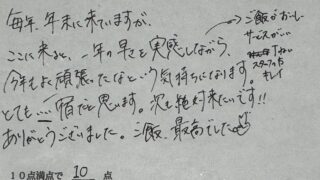 毎年、年末に来ていますが、
ここに来ると、一年の早さを実感しながら、
今年もよく頑張ったなという気持ちになります。
とても…宿だと思います。次も絶対来たいです!!
ありがとうございました。ご飯、最高でした
→ご飯がおいしい
サービスがいい
スタッフの方
キレイ
10点満点で 10 点